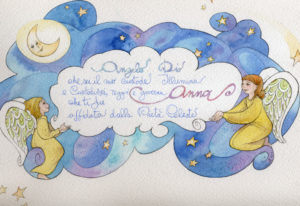 Angelo di Dio
che sei il mio Custode Illumina
e Custodisci reggi e governa Anna
che ti fu
affidata dalla Pietà Celeste